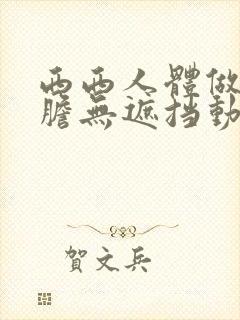 西西人體做
膽無遮挡動
賀文兵